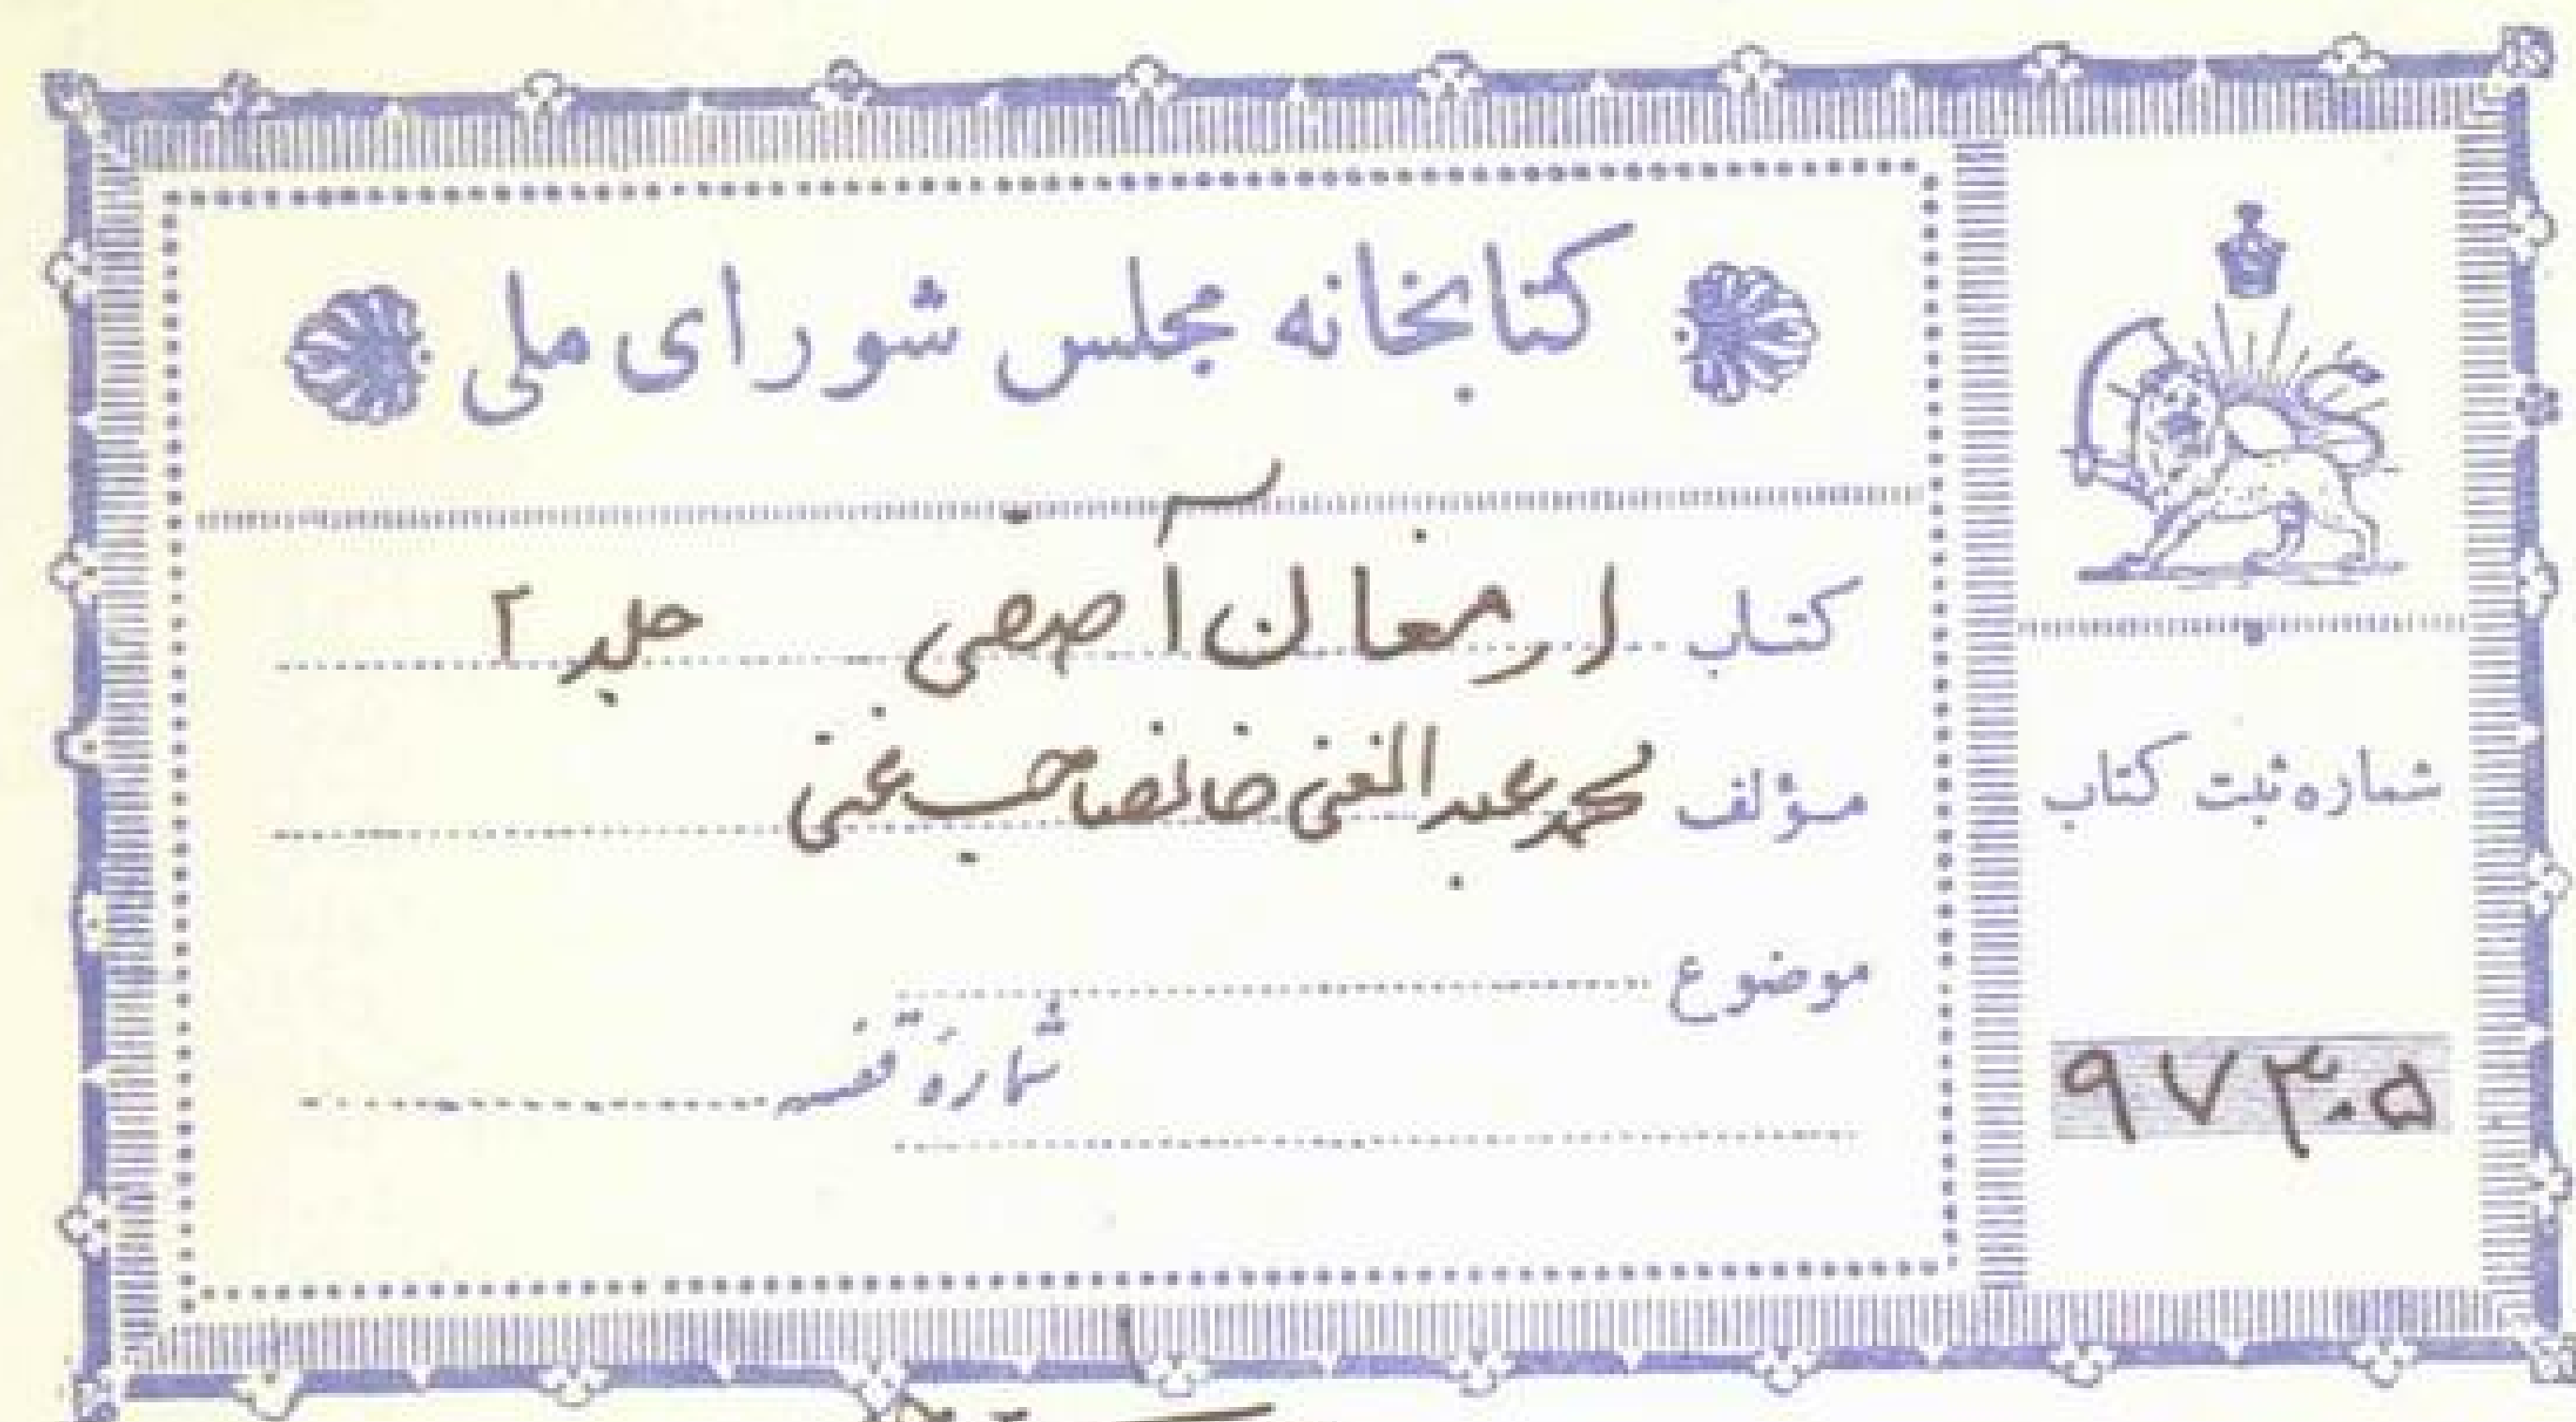 کتابخانه مجلس شورای ملی
کتاب ارمغان آصفی جلد ۲
مؤلف محمد عبد الغنی خانصاحب غنی
موضوع
شماره قفسه
شماره ثبت کتاب
۹۷۳۰۵